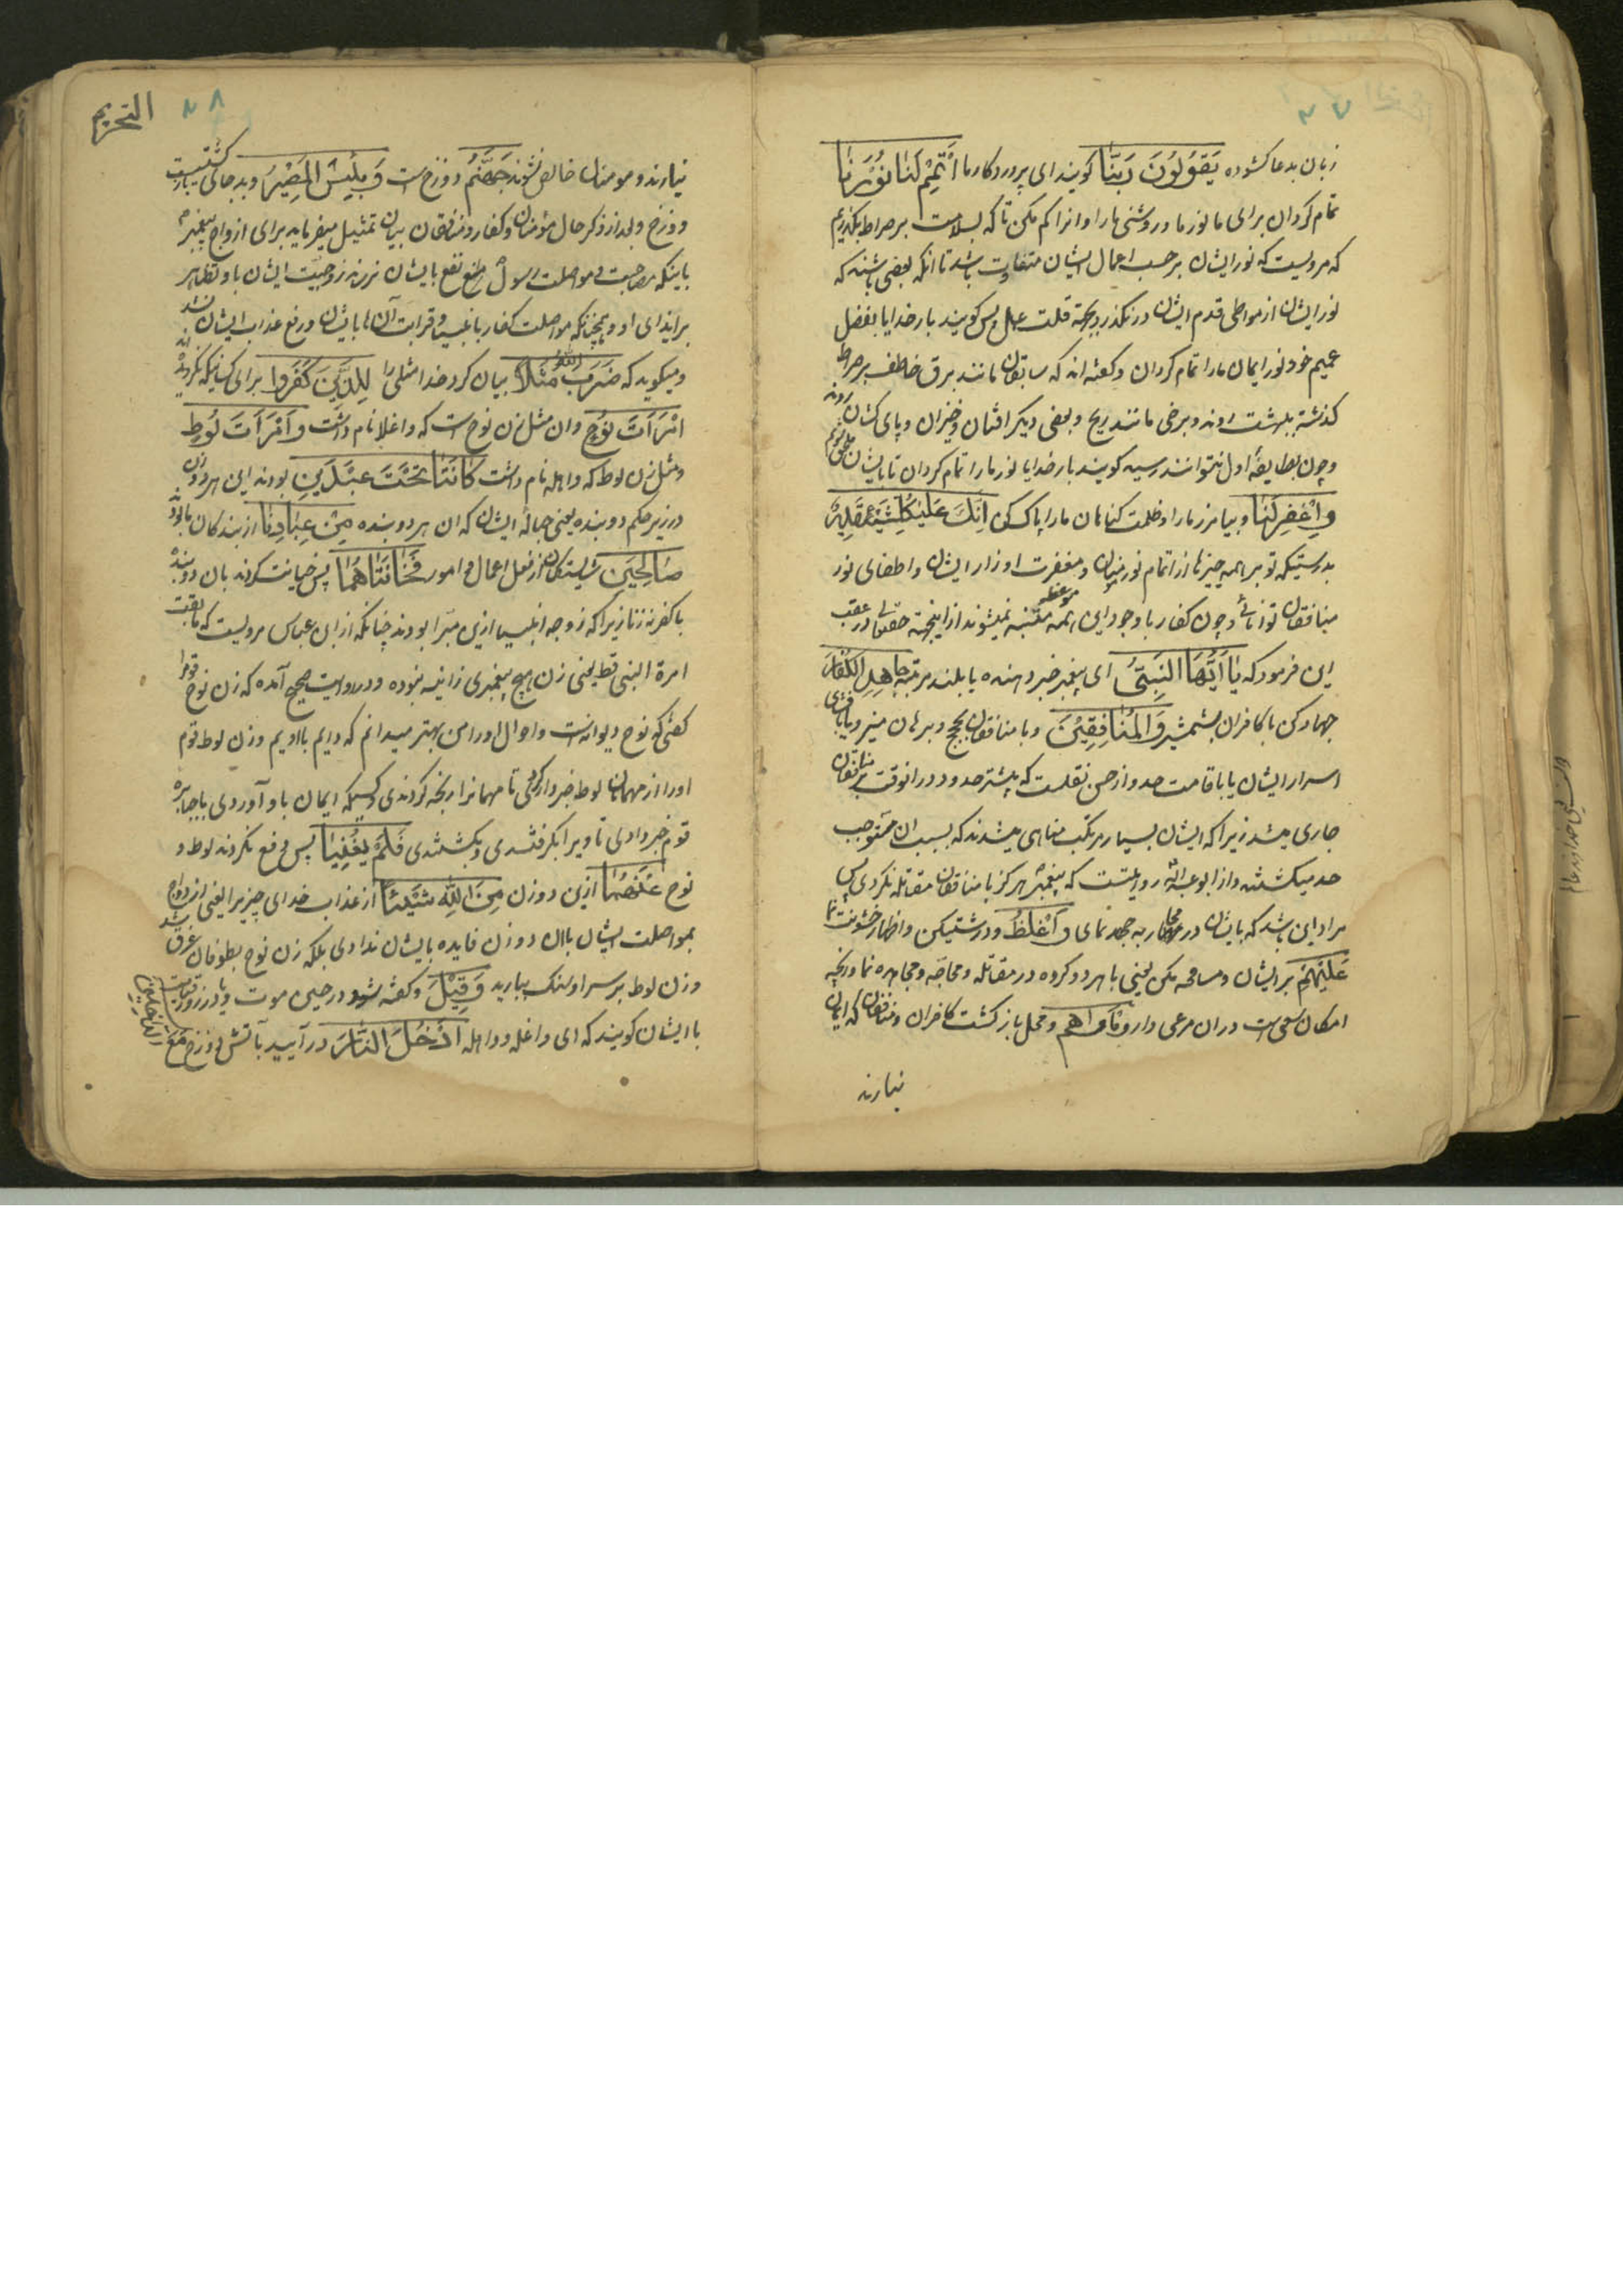 ۲۷
زبان بدعا کشوده یَقُولُونَ رَبَّنا کویند ای پروردکار ما اَتْمِمْ لَنا نُورَنا
تمام کردان برای ما نور ما و روشنی ما را و انرا کم مکن تا که بسلامت بر صراط بکذریم
که مرویست که نور ایشان بر حسب اعمال ایشان متفاوت باشد تا انکه بعضی باشند که
نور ایشان از مواطی قدم ایشان در نکذرد بجهة قلت عمل پس کویند بار خدایا بفضل
عمیم خود نور ایمان ما را تمام کردان و کفته اند که سابقان مانند برق خاطف بر صراط
کذشته ببهشت روند و برخی مانند ریح و بعضی دیکر افتان و خیزان و پای کشان روند
و چون بطایفهٔ اول نتوانند رسید کویند بار خدایا نور ما را تمام کردان تا بایشان ملحق شویم
وَ اغْفِرْ لَنا و بیامرز ما را و ظلمت کناهان ما را پاک کن اِنَّكَ عَلی کُلِّ شَیْءٍ قَدِیرٌ
بدرستیکه تو بر همه چیزها از اتمام نور مؤمنان و مغفرت اوزار ایشان و اطفای نور
منافقان توانائی و چون کفار با وجود این همه موعظه متنبه نمیشوند از اینجهة حقتعالی در عقب
این فرمود که یا اَیُّهَا النَّبِیُّ ای پیغمبر خبر دهنده یا بلند مرتبه جاهِدِ الْکُفّارَ
جهاد کن با کافران بشمشیر وَ الْمُنافِقِینَ و با منافقان بحجج و برهان منیر و یا بافشای
اسرار ایشان یا باقامت حدود از حسن نقلست که بیشتر حدود در انوقت بر منافقان
جاری میشد زیرا که ایشان بسیار مرتکب مناهی میشدند که بسبب ان مستوجب
حد میکشتند و از ابو عبدالله روایتست که پیغمبر هرکز با منافقان مقاتله نکردی پس
مراد این باشد که بایشان در محاربه جهد نمای وَ اغْلُظْ و درشتی کن و اظهار خشونت نما
عَلَیْهِمْ بر ایشان و مسامحه مکن یعنی با هر دو کروه در مقاتله و محاجّه و مجاهره نما و انچه
امکان سعی است در ان مرعی دار وَ مَأْواهُمْ و محل باز کشت کافران و منافقان که ایمان
نیارند
التحریم
۲۸
نیارند و مومنان خالص نشوند جَهَنَّمُ دوزخ است وَ بِئْسَ الْمَصِیرُ و بد جای بازکشتیست
دوزخ و بعد از ذکر حال مؤمنان و کفار و منافقان بیان تمثیل میفرماید برای ازواج پیغمبر
باینکه مصاحبت و مواصلت رسول نافع نفع بایشان نرساند زوجیت ایشان با و تظاهر
بر ایذای او و همچنانکه مواصلت کفار با انبیا و قرابت آن ها بایشان و رفع عذاب ایشان نشد
و میکوید که ضَرَبَ اللّٰهُ مَثَلاً بیان کرد خدا مثلی را لِلَّذِینَ کَفَرُوا برای کسانیکه نکرویده اند
امْرَأَتَ نُوحٍ و ان مثل زن نوح است که واغلا نام داشت وَ امْرَأَتَ لُوطٍ
و مثل زن لوط که واهله نام داشت کانَتا تَحْتَ عَبْدَیْنِ بودند این هر دو زن
در زیر حکم دو بنده یعنی حبالهٔ ایشان که ان هر دو بنده مِنْ عِبادِنا از بندکان ما بودند
صالِحَیْنِ شایستکان از فعل اعمال و امور فَخانَتاهُما پس خیانت کردند بان دو بنده
با کفر نه زنا زیرا که زوجه انبیا ازین مبرّا بودند چنانکه از ابن عباس مرویست که ما بغت
امرة النبی قط یعنی زن هیچ پیغمبری زانیه نبوده و در روایت صحیح آمده که زن نوح قوم را
کفتی که نوح دیوانه است و احوال او را من بهتر میدانم که دایم با اویم و زن لوط قوم
او را از مهمانان لوط خبردار کردی تا مهمانرا رنجه کردندی و کسیکه ایمان باو آوردی با جبابره
قوم خبر دادی تا ویرا بکرفتندی و بکشتندی فَلَمْ یُغْنِیا پس دفع نکردند لوط و
نوح عَنْهُما ازین دو زن مِنَ اللّٰهِ شَیْئاً از عذاب خدای چیزیرا یعنی ازدواج
بمواصلت ایشان با ان دو زن فایده بایشان ندادی بلکه زن نوح بطوفان غرق شد
و زن لوط بر سر او سنک ببارید وَ قِیلَ و کفته شود در حین موت و یا در روز قیامت
با ایشان کویند که ای واغله و واهله ادْخُلَا النّارَ در آیید بآتش دوزخ مَعَ
الدّاخِلِینَ